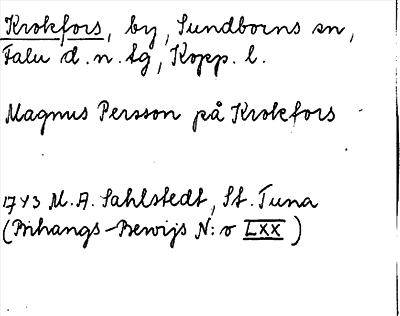 Krokfors, by, Sundborns sn,
Falu d.n. tg, Kopp. l.
Magnus Persson på Krokfors
1743 M. A. Sahlstedt, St. Tuna
(Bihangs-Bewijs N:o LXX)